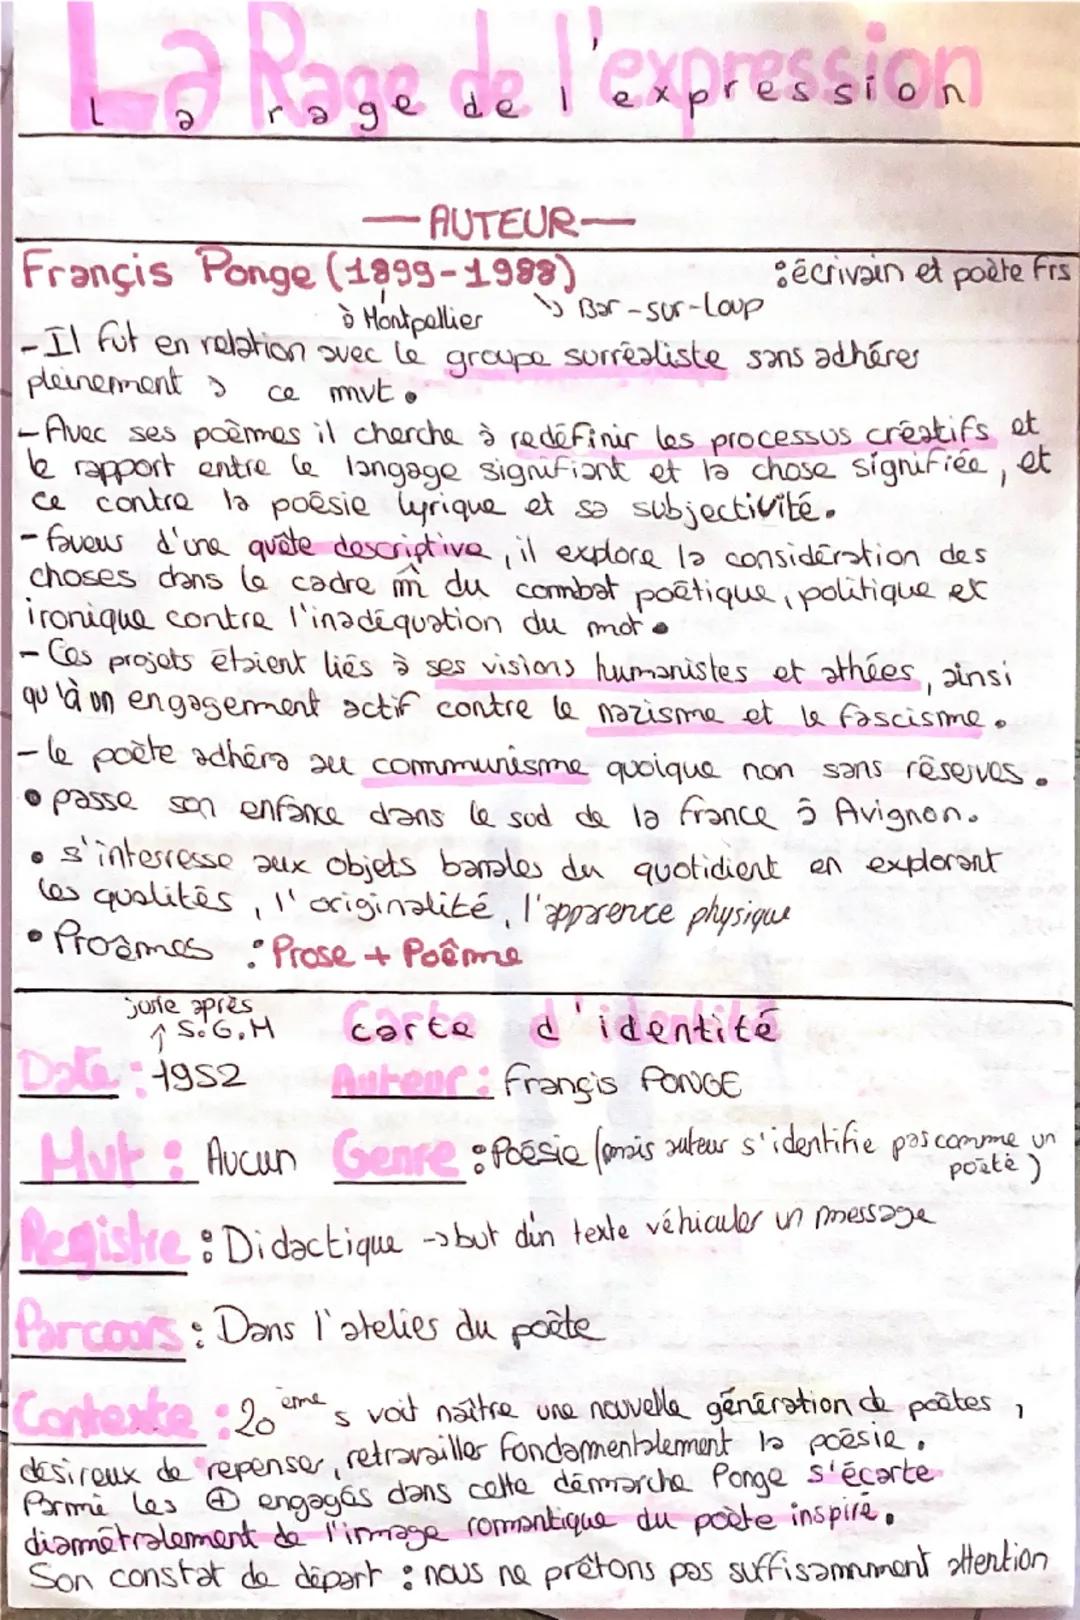 La Rage de l'expression
La rage de l'expression
— AUTEUR —
Françis Ponge (1899-1988) : écrivain et poète frs
à Montpellier ↳ Bar-sur-Loup
- Il fut en relation avec le groupe surréaliste sans adhérer
pleinement à ce mvt.
- Avec ses poèmes il cherche à redéfinir les processus créatifs et
le rapport entre le langage signifiant et la chose signifiée, et
ce contre la poésie lyrique et sa subjectivité.
- faveur d'une quête descriptive, il explore la considération des
choses dans le cadre m̂ du combat poétique, politique et
ironique contre l'inadéquation du mot.
- Ces projets étaient liés à ses visions humanistes et athées, ainsi
qu'à un engagement actif contre le nazisme et le fascisme.
- le poète adhéra au communisme quoique non sans réserves.
• passe son enfance dans le sud de la france à Avignon.
• s'interresse aux objets banales du quotidient en explorant
les qualités, l'originalité, l'apparence physique
• Proèmes : Prose + Poême
juste après
↑ S.G.M carte d'identité
Date : 1952 Auteur : françis PONGE
Mvt : Aucun Genre : Poésie (mais auteur s'identifie pas comme un
poète)
Registre : Didactique -> but d'un texte véhiculer un message
Parcours : Dans l'atelier du poète
Contexte : 20ème s voit naître une nouvelle génération de poètes,
désireux de repenser, retravailler fondamentalement la poésie.
Parmi les ⊕ engagés dans cette démarche Ponge s'écarte
diamétralement de l'image romantique du poète inspiré.
Son constat de départ : nous ne prêtons pas suffisamment attention